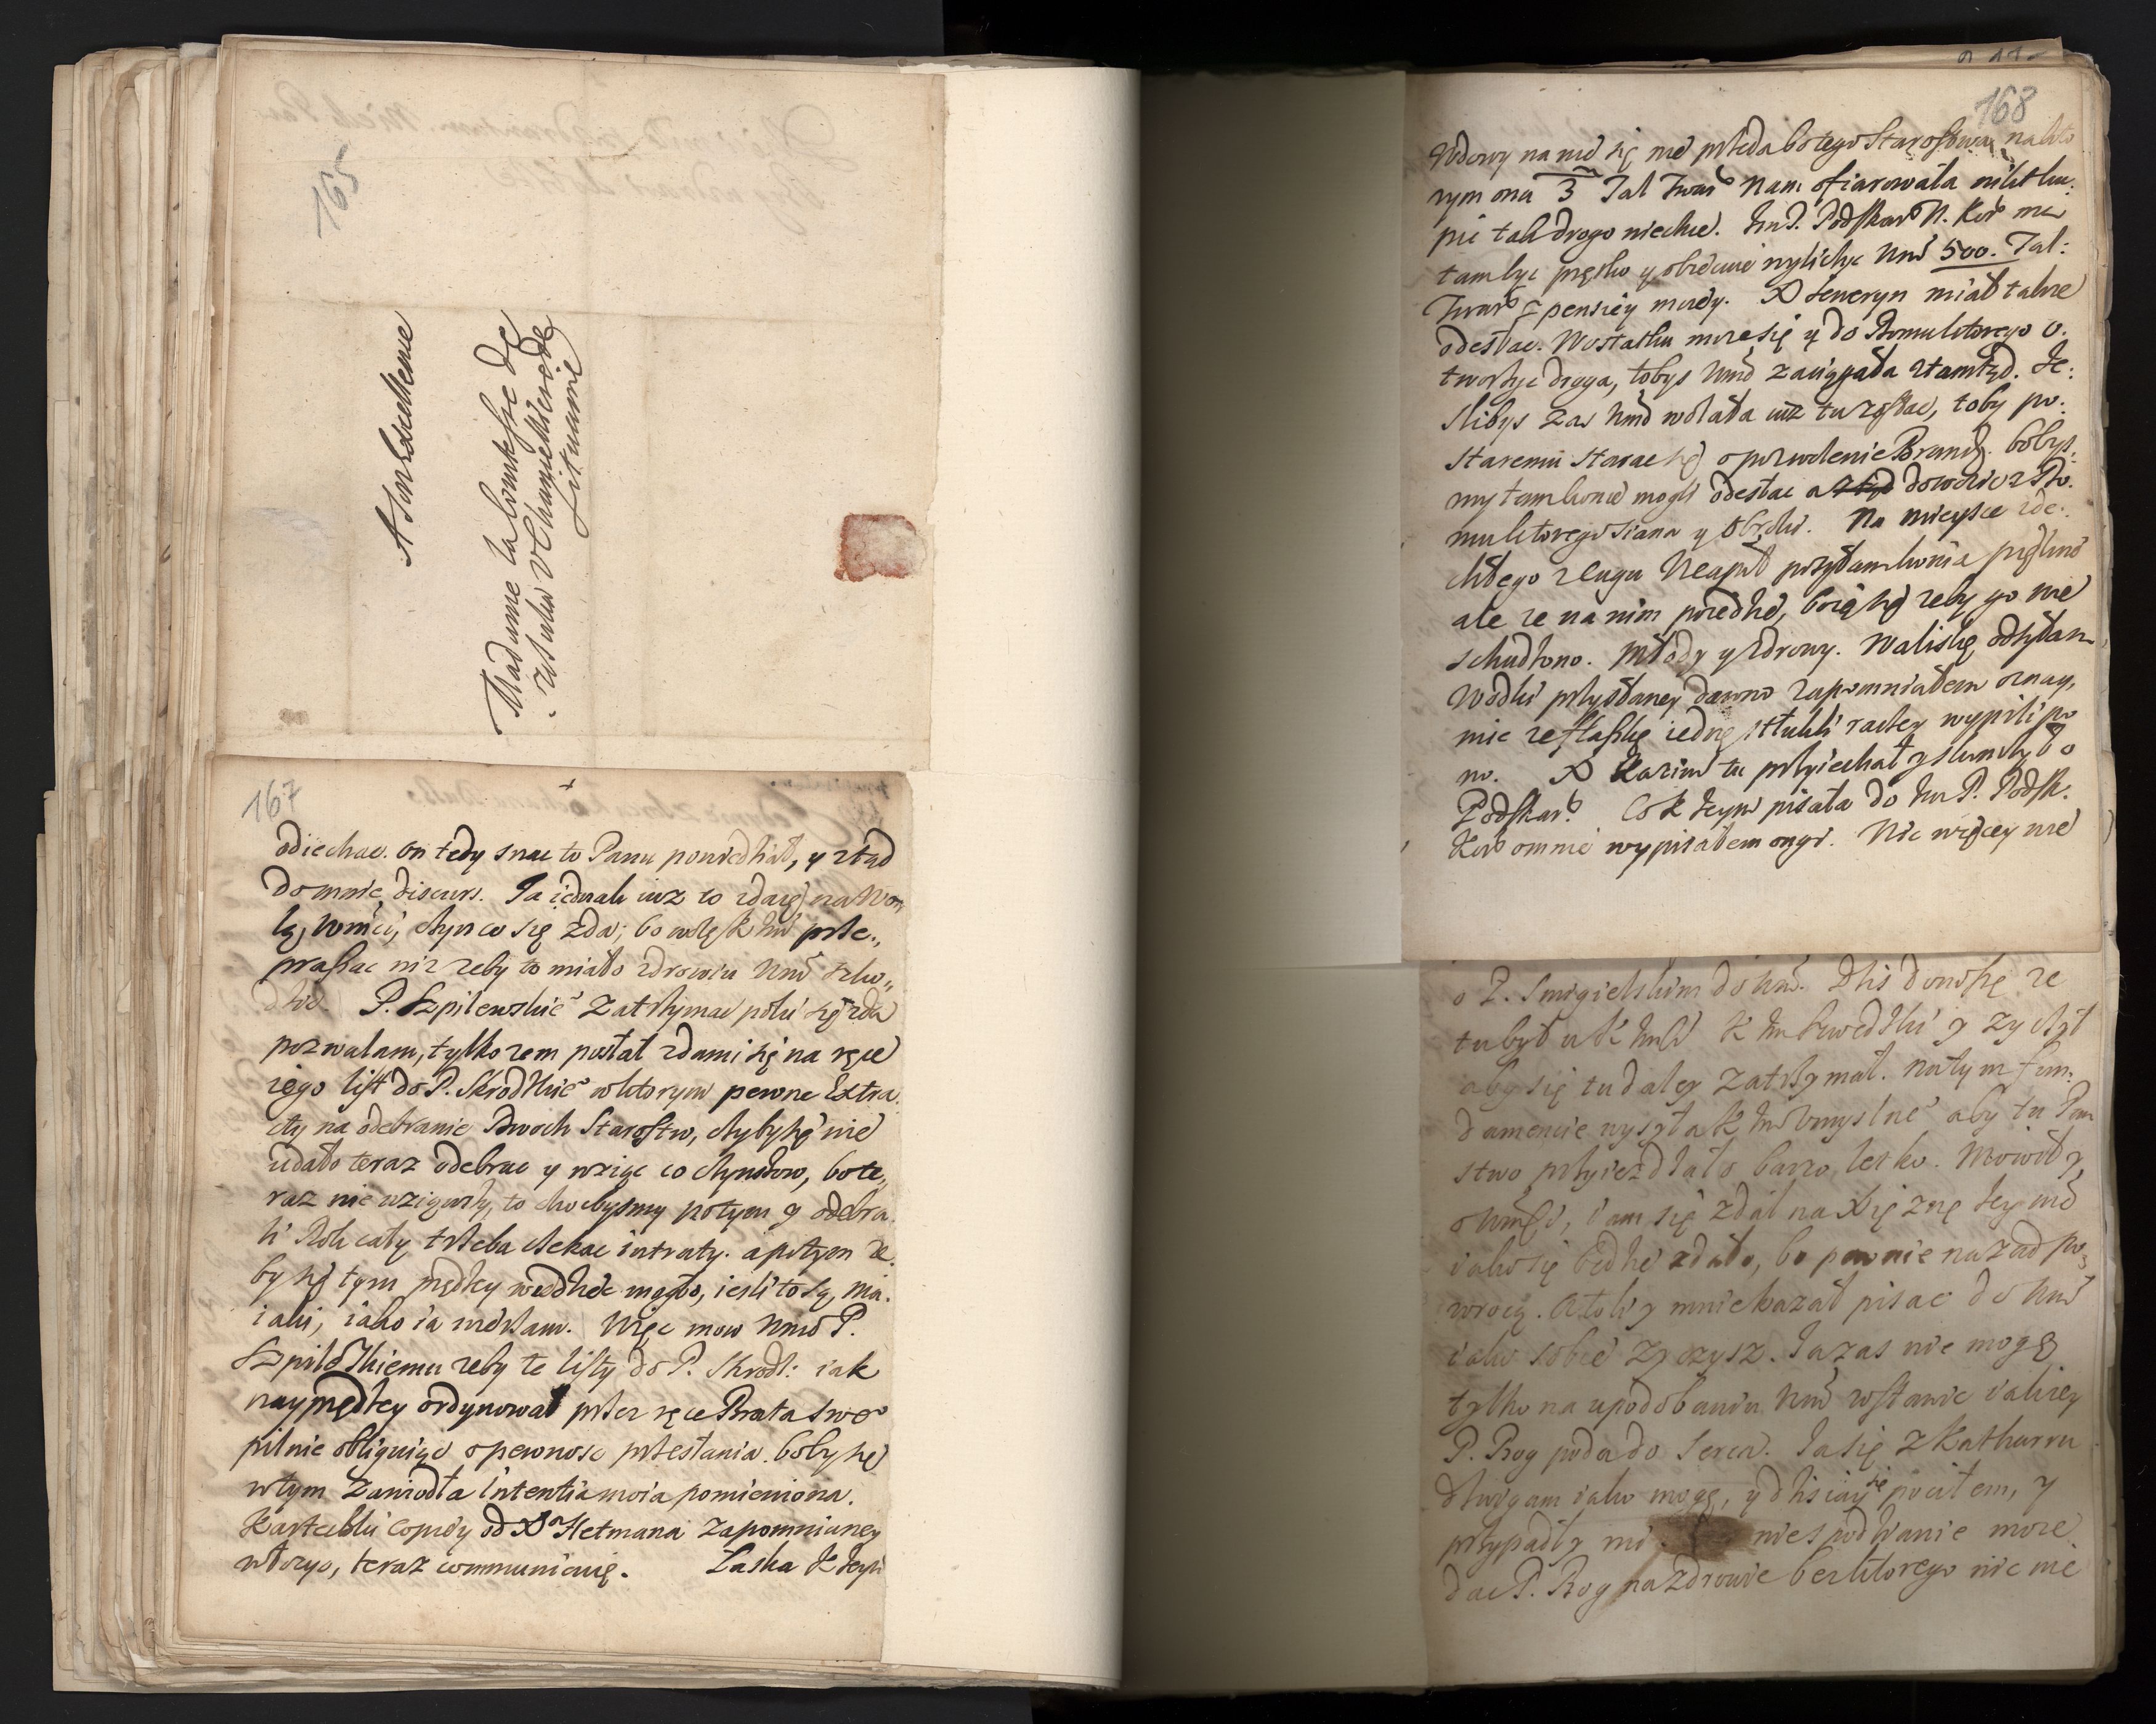 165
A Son Excellence
Madame la Comtesse de
Lituanie
167
odiechac. on tedy snac to Panu powiedział, y ztąd
do mnie discurs. Ja iednak iuz to zdaię na Wo„
lą, Wmści, czyn co się zda; bo wolę
praszac niz zeby to miało zdrowiu Wmści szko„
dzić. P. Szpilewskie° zatrzymac poki się zda
pozwalam, tylko zem posłał zdami się na ręce
iego list do P. Skrodzkie° w ktorym pewne Extra„
cty na odebranie Dwoch Starostw, czyby się nie
udało teraz odebrac y wziąc co czynszow, bo te„
raz nie wziąwszy, to chocbysmy potym y odebra„
li Rok cały trzeba czekac intraty. a potym ze„
by się tym prędzey wiedziec mogło, iesli to są, ma„
iątki, iako ia mowiłam. Więc mow Wmść P.
Szpilewskiemu zeby te listy do P. Skrodz: iak
nayprędzey ordynował przez ręce Brata swe°
pilnie obliguiąc o pewnosc przesłania. boby się
w tym zawiodła intentia moia pomieniona.
Kartelski copiey od X° Hetmana zapomnianey
wczoryo, teraz communicuię. Łaska
168
Wdowy na nie się nie przeda bo tego Starostwa, na kto
rym ona 3 Tal Twar° nam ofiarowała nikt ku„
pic tak drogo niechce. Im P. Podskar° N. Kor° ma
tam byc prętko y obiecuie wyliczyc Wmści 500. Tal:
Twar° z pensiey moiey. X Seweryn miał także
odesłac. W ostatku może się y do Romulktorego o„
tworzyc droga, tobys Wmść zaciągała ztamtąd. Je„
slibys zas Wmść wolała iuz tu zostac, toby po„
staremu starac się o pozwolenie Brand. bobys„
my tam konie mogli odesłac a dowozic z Ro„
mulktorego siana y obroki. Na mieysce zde„
chłego z cugu Neapol posyłam konia pięknego
ale ze na nim poiedzie, boię się zeby go nie
schudzono. Młody y zdrowy. Waliskę odsyłam
Wodki przysłaney dawno zapomniałem oznay„
mic ze flaszkę iedne stłukli raczey wypili po
no. X Kazim° tu przyiechał y stanął° o
Podskar°. Co K Jeym pisała do Im P. Podsk.
Kor° o mnie wypisałem onys. Nic więcey nie
o P. Smigielskim do Wmści. Dzis donoszę ze
tu był u K Jmści K Im y zyczył
aby się tu daley zatrzymał. na tym fun„
damencie wysyła K Im umyslne° aby tu Pan
stwo przyiezdzało barzo letko. Mowił y
o Wmści, iam się zdał na Xięznę Jeymc
iako się bedzie zdało, bo pewnie nazad po„
wrocą. Atoli y mnie kazał pisac do Wmści
iako sobie zyczysz. Ja zas nie mogę
tylko na upodobaniu Wmści wstanie iakiey
P. Bog poda do serca. Ja się z Katharru
dzwigam iako mogę, y dzisiay się pociłem, y
przypadły mi niespodzianie może
dac P. Bog na zdrowie bez ktorego nic nie